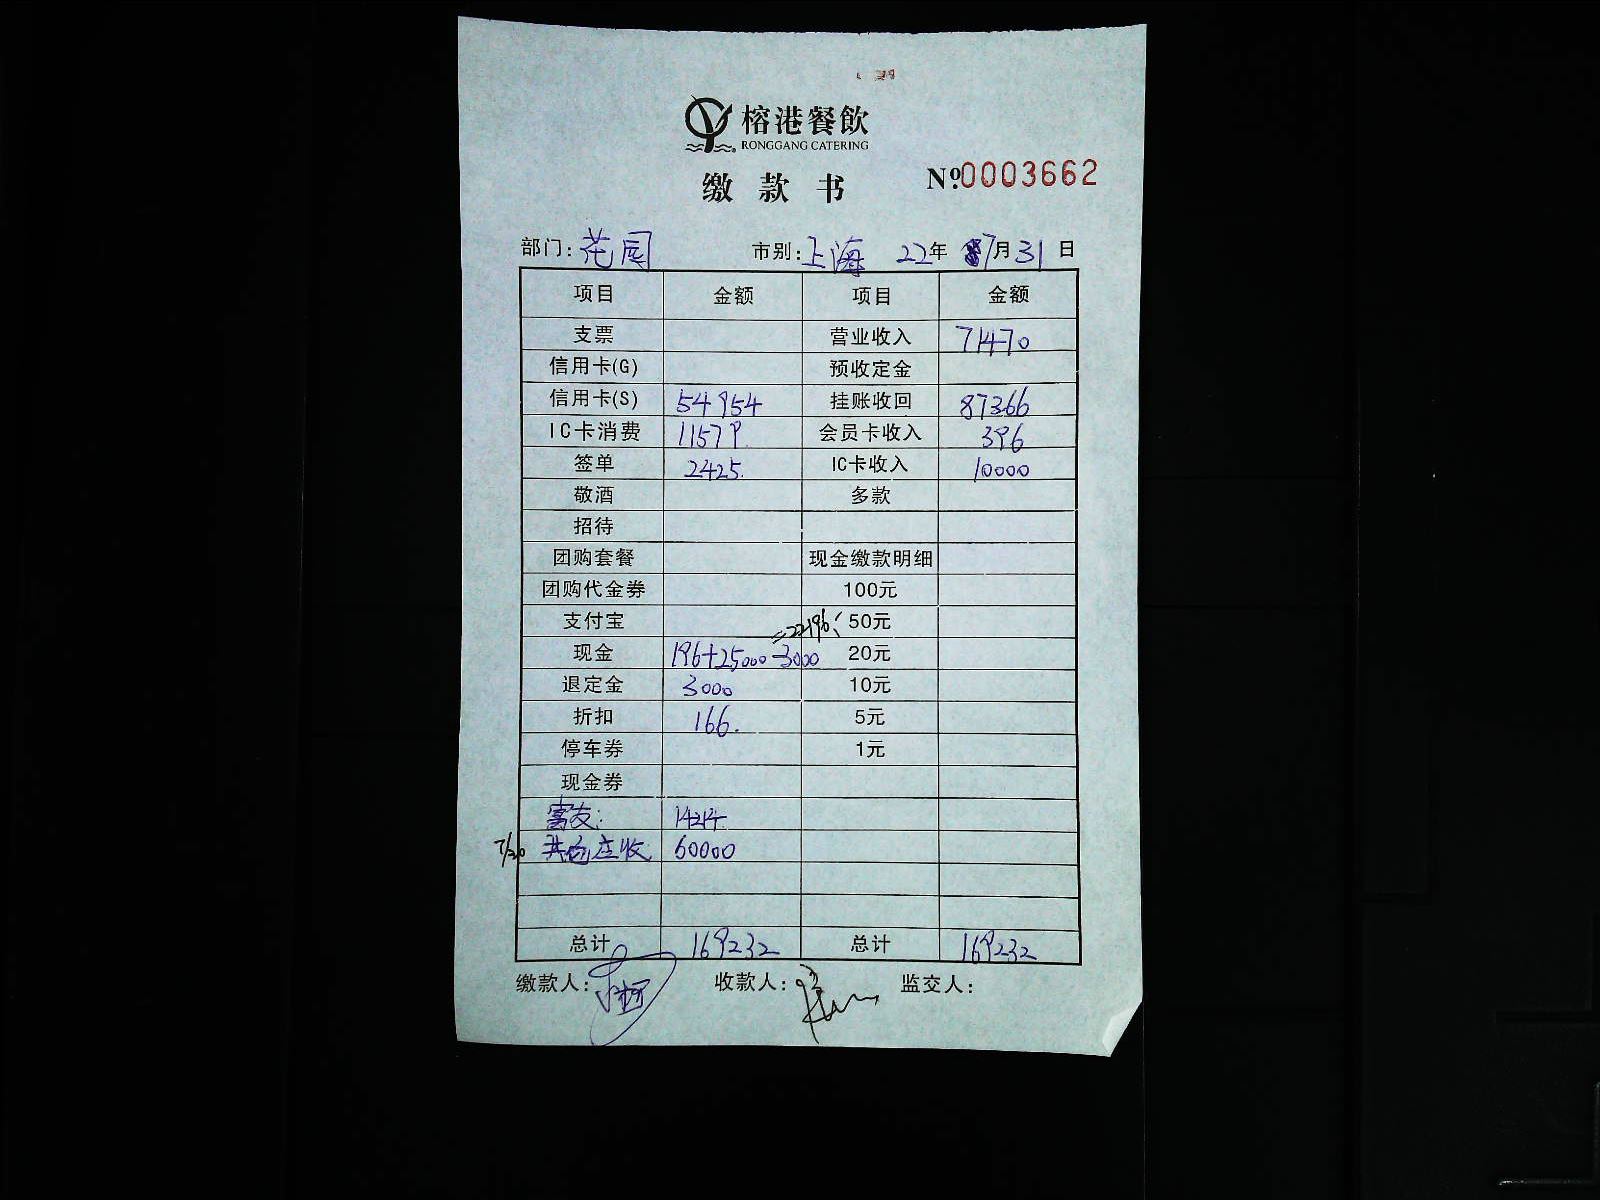 榕港餐飲
RONGGANG CATERING
缴款书
№0003662
部门: 花园 市别: 上海 22年 7月31日
项目 金额 项目 金额
支票 营业收入 71470
信用卡(G) 预收定金
信用卡(S) 54954 挂账收回 87366
IC卡消费 11579. 会员卡收入 396
签单 2425. IC卡收入 10000
敬酒 多款
招待
团购套餐 现金缴款明细
团购代金券 100元
支付宝 =22196 50元
现金 196+25000-3000 20元
退定金 3000 10元
折扣 166. 5元
停车券 1元
现金券
富友: 14214
7/30 其他应收 60000
总计 169232 总计 169232
缴款人: 收款人: 监交人: